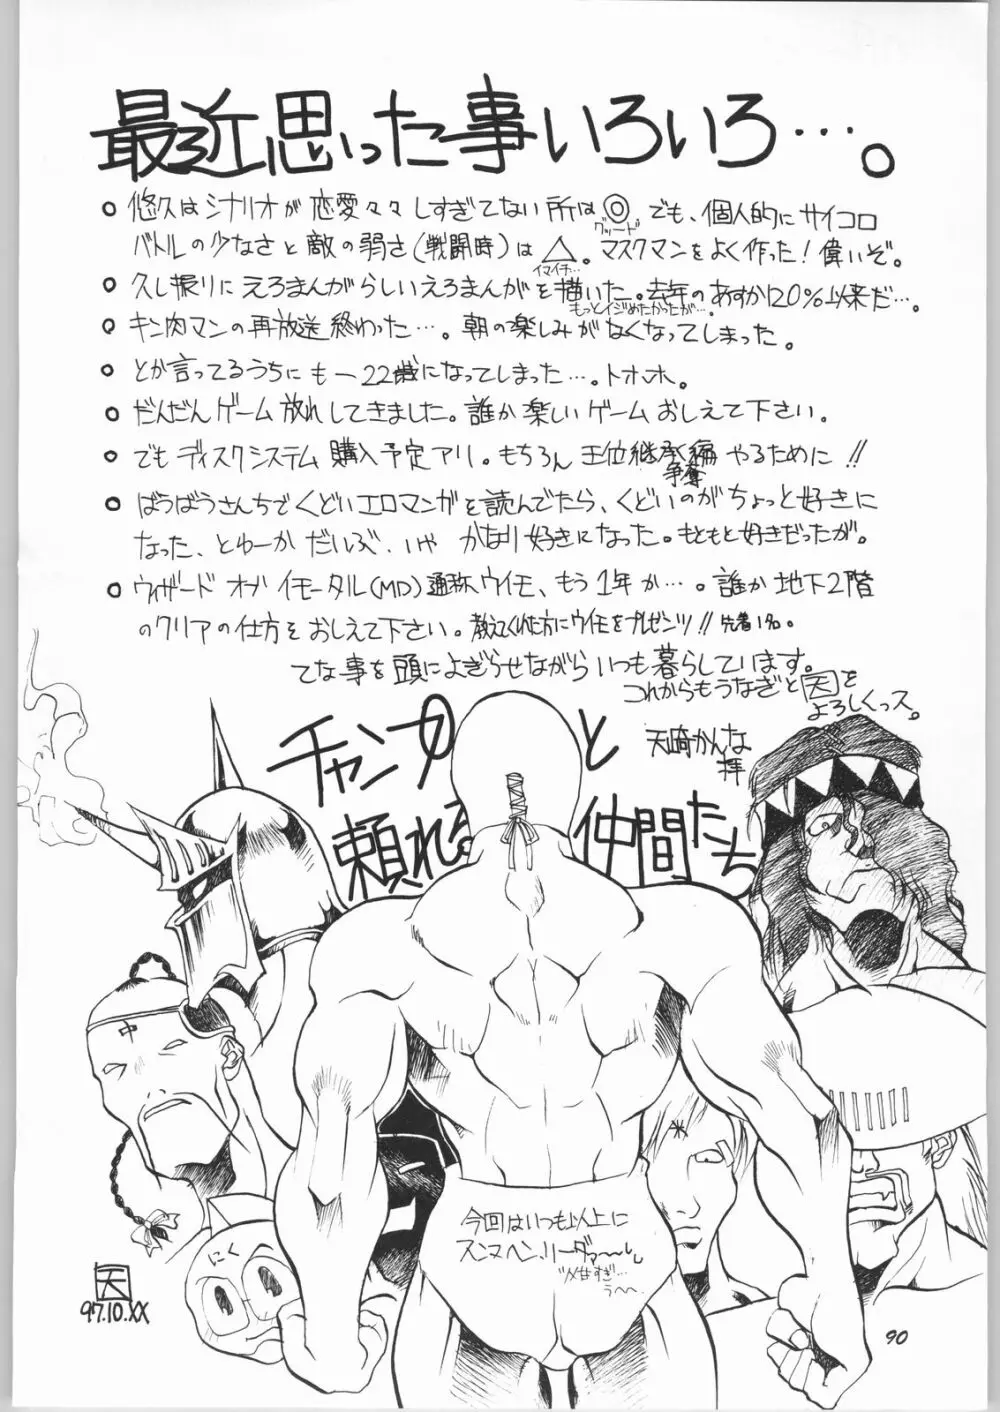 最近思った事いろいろ…。
○悠久はシナリオが恋愛々々しすぎてない所は◎。でも、個人的にサイコロ
グッード
バトルの少なさと敵の弱さ(戦闘時)は△。マスクマンをよく作った!偉いぞ。
イマイチ…
○久し振りにえろまんがらしいえろまんがを描いた。去年のあすか120%以来だ…。
もっとイジめたかったが…。
○キン肉マンの再放送終わった…。朝の楽しみがなくなってしまった。
○とか言ってるうちにも一22歳になってしまった…。トホホ。
○だんだんゲーム放れしてきました。誰か楽しいゲームおしえて下さい。
○でもディスクシステム購入予定アリ。もちろん王位継承編やるために!!
争奪
○ばうばうさんちでくどいエロマンガを読んでたら、くどいのがちょっと好きに
なった、とゆーかだいぶ、いやかなり好きになった。もともと好きだったが。
○ウィザードオブイモータル(MD)通称ウイモ、もう1年か…。誰か地下2階
のクリアの仕方をおしえて下さい。教えてくれた方にウイモをプレゼンツ!!先着1名。
てな事を頭によぎらせながらいつも暮らしています。
これからもうなぎと天を
よろしくっス。
天崎かんな
拝
チャンプと
頼れる仲間たち
中
にく
今回はいつも以上に
スンマヘン、リーダァ〜〜
天
97.10.XX
90